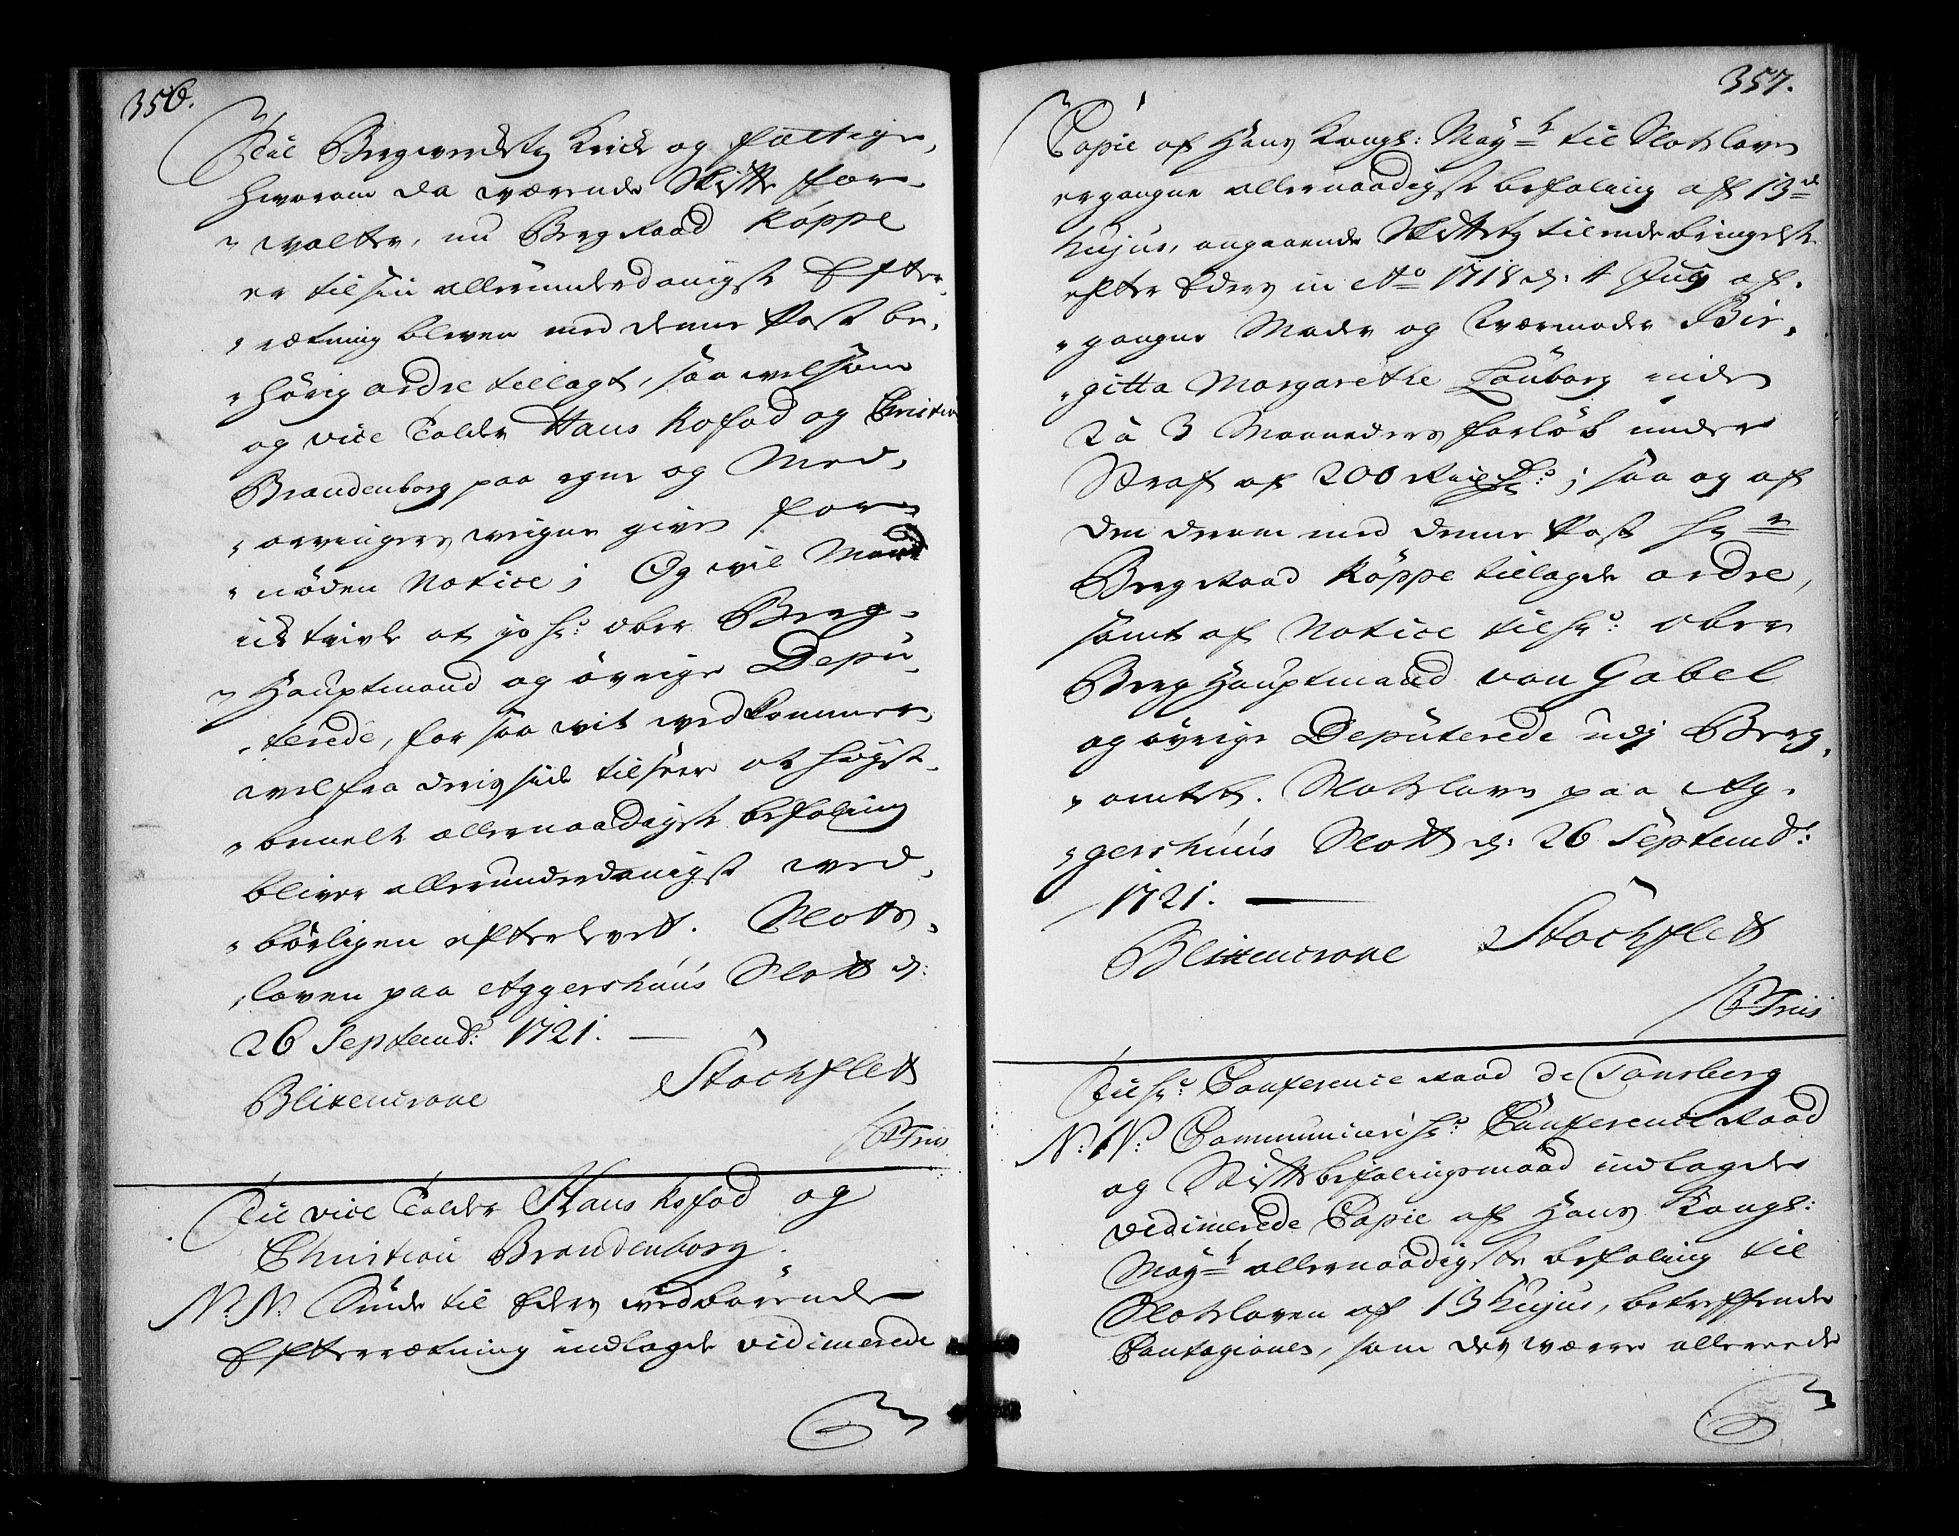 356.
Til Bergverkets Kirke og fattige,
hvorom da værende Skifte for-
walter, nu Berg Raad Köppe
er til sin allerunderdanigst Efter-
rætning bleven med denne Post be-
hörig ordre tillagt, saa velsom
og vice Tolder Hans Kofod og Christian
Brandenborg paa egne og Med-
arvingers veigne given for-
nöden Notice; Og vil Mand
ick tvivle at jo Hr: Ober Berg-
Hauptmand og övrige Depu-
terede, for saa vit vedkommer,
vel fra deris side tilseer at högst-
bemelt allernaadigste befaling
bliver allerunderdanigst ved-
börligen efterlevet. Slots-
loven paa Aggershuus Slott d:
26 Septemb: 1721.
Blixencrone Stockflett
/PTriis
Til vice Tolder Hans Kofod og
Christian Brandenborg.
N: N: Sende til Eders vedbörende
Efterrætning indlagde vidimerede
357.
Copie af Hans Kongl: May.t til Slotsloven
ergangne allernaadigste befaling af 13de
hujus, angaaende Skiftets tilendebringelse
efter Eders in Ao 1718 d: 4 Aug af-
gangne Moder og Værmoder Bir-
gitta Margarethe Lauborg inden
2 à 3 Maaneders forlöb under
Straf af 200 Rixdr:; saa og af
den derom med denne Post Hr
Berg Raad Köppe tillagde ordre,
samt af Notice til Hr: Ober
Berg Hauptmand von Gabel
og övrige Deputerede udj Berg-
amtet. Slotsloven paa Ag-
gershuus Slott d: 26 Septemb:
1721.
Blixencrone Stockflett
/PTriis
Til Hr: Conference Raad de Tonsberg
N: N: Communicere Hr: Conference Raad
og Stiftsbefalingsmand indlagde
vidimerede Copie af Hans Kongl:
May.t allernaadigste befaling til
Slotsloven af 13 hujus, betreffende
Contagionen, som des værre allerede